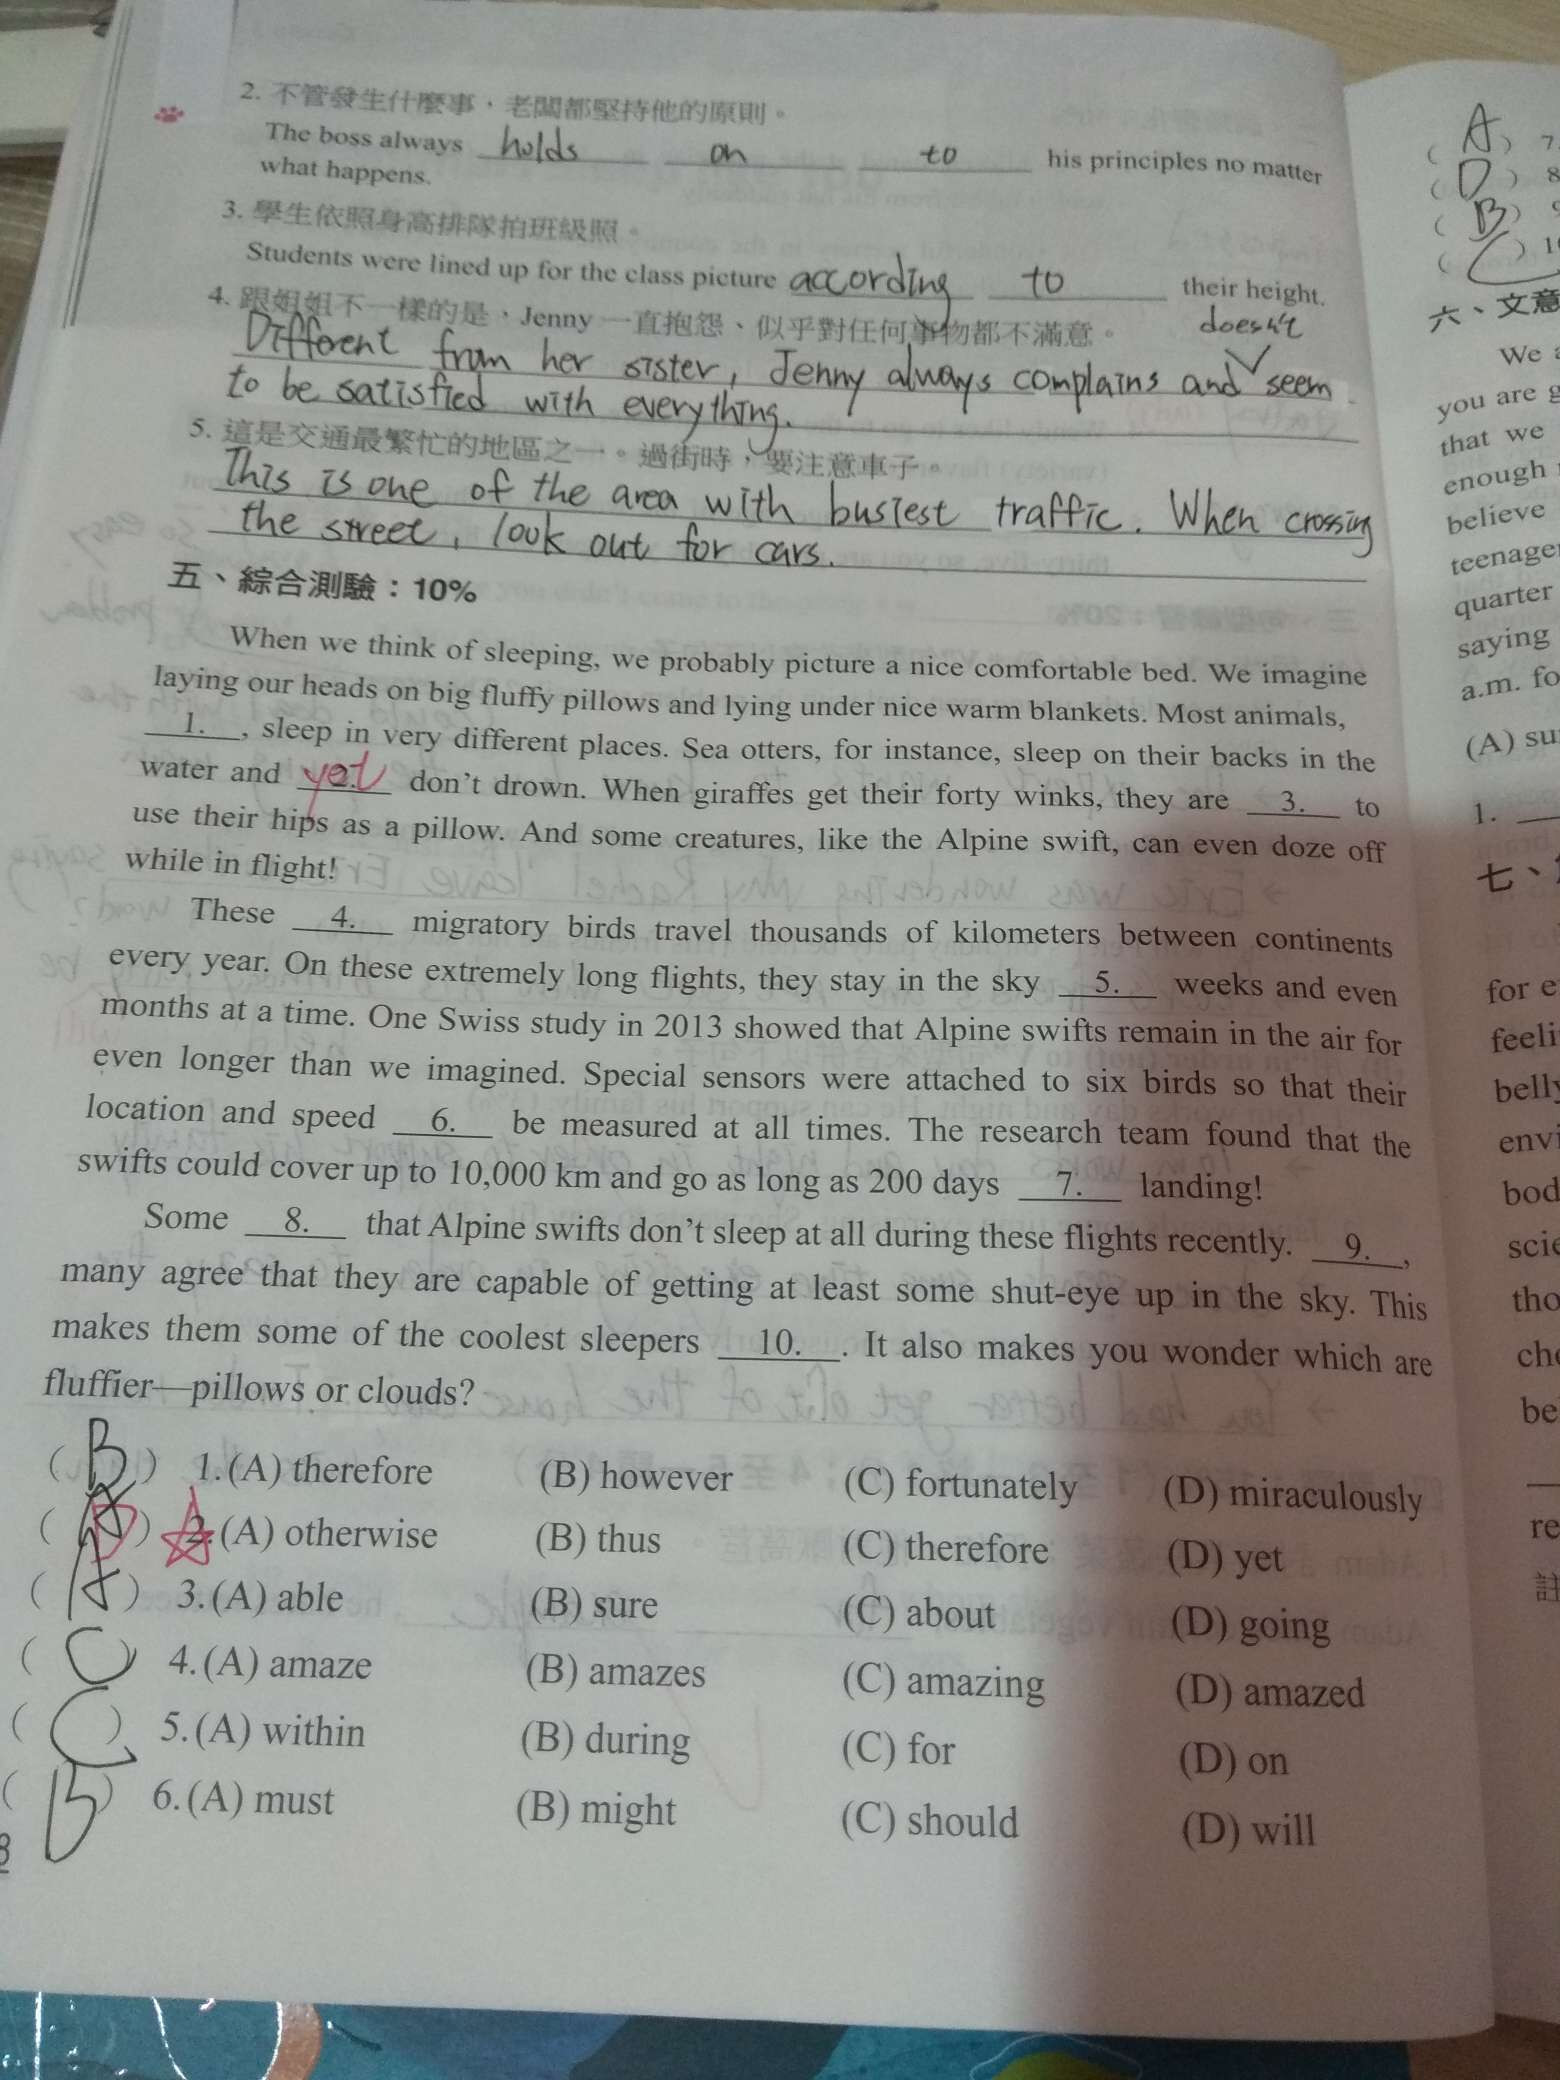 2. 不管發生什麼事，老闆都堅持他的原則。
The boss always holds on to his principles no matter
what happens.
3. 學生依照身高排隊拍班級照。
Students were lined up for the class picture according to their height.
4. 跟姐姐不一樣的是，Jenny 一直抱怨、似乎對任何事物都不滿意。
doesn't
Different from her sister, Jenny always complains and seem
to be satisfied with everything.
5. 這是交通最繁忙的地區之一。過街時，要注意車子。
This is one of the area with busiest traffic. When crossing
the street, look out for cars.
五、綜合測驗：10%
When we think of sleeping, we probably picture a nice comfortable bed. We imagine
laying our heads on big fluffy pillows and lying under nice warm blankets. Most animals,
1. , sleep in very different places. Sea otters, for instance, sleep on their backs in the
water and 2. yet don't drown. When giraffes get their forty winks, they are 3. to
use their hips as a pillow. And some creatures, like the Alpine swift, can even doze off
while in flight!
These 4. migratory birds travel thousands of kilometers between continents
every year. On these extremely long flights, they stay in the sky 5. weeks and even
months at a time. One Swiss study in 2013 showed that Alpine swifts remain in the air for
even longer than we imagined. Special sensors were attached to six birds so that their
location and speed 6. be measured at all times. The research team found that the
swifts could cover up to 10,000 km and go as long as 200 days 7. landing!
Some 8. that Alpine swifts don't sleep at all during these flights recently. 9. ,
many agree that they are capable of getting at least some shut-eye up in the sky. This
makes them some of the coolest sleepers 10. . It also makes you wonder which are
fluffier—pillows or clouds?
( B ) 1. (A) therefore (B) however (C) fortunately (D) miraculously
( D ) 2. (A) otherwise (B) thus (C) therefore (D) yet
( A ) 3. (A) able (B) sure (C) about (D) going
( C ) 4. (A) amaze (B) amazes (C) amazing (D) amazed
( C ) 5. (A) within (B) during (C) for (D) on
( B ) 6. (A) must (B) might (C) should (D) will
( A ) 7.
( D ) 8
( B )
( C ) 10
六、文意
We
you are
that we
enough
believe
teenage
quarter
saying
a.m. fo
(A) su
1.
七、
for e
feeli
belly
envi
bod
scie
tho
che
be
re
註